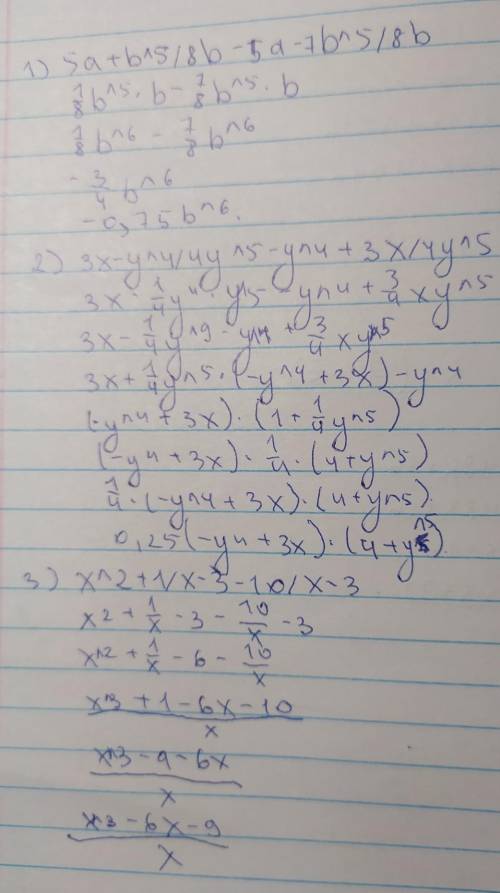 1) 5a+b^5/8b-5a-7b^5/8b
1/8 b^5·b-7/8 b^5·b
1/8 b^6-7/8 b^6
-3/4 b^6
-0,75b^6.
2) 3x-y^4/4y^5-y^4+3x/4y^5
3x-1/4 y^4·y^5-y^4+3/4 xy^5
3x-1/4 y^9-y^4+3/4 xy^5
3x+1/4 y^5·(-y^4+3x)-y^4
(-y^4+3x)·(1+1/4 y^5)
(-y^4+3x)·1/4·(4+y^5)
1/4·(-y^4+3x)·(4+y^5).
0,25(-y^4+3x)·(4+y^5).
3) x^2+1/x-3-10/x-3
x^2+1/x-3-10/x-3
x^2+1/x-6-10/x
x^3+1-6x-10
x
x^3-9-6x
x
x^3-6x-9
x